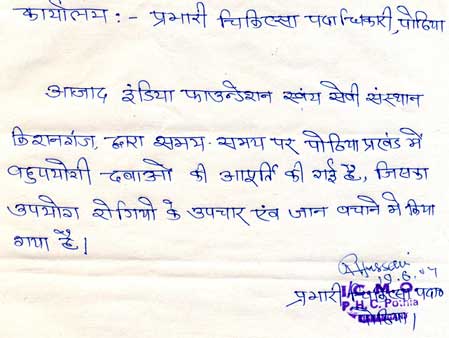 कार्यालय :- प्रभारी चिकित्सा पदाधिकारी, पोठिया
आजाद इंडिया फाउन्डेशन स्वंय सेवी संस्थान
किशनगंज, द्वारा समय-समय पर पोठिया प्रखंड में
बहुपयोगी दबाओं की आपूर्ति की गई है, जिसका
उपयोग रोगियो के उपचार एंव जान बचाने मे किया
गया है।
Hussain
19.6.07
प्रभारी चिकित्सा पदा०
I/C. M. O
P. H. C. Pothia
पोठिया।